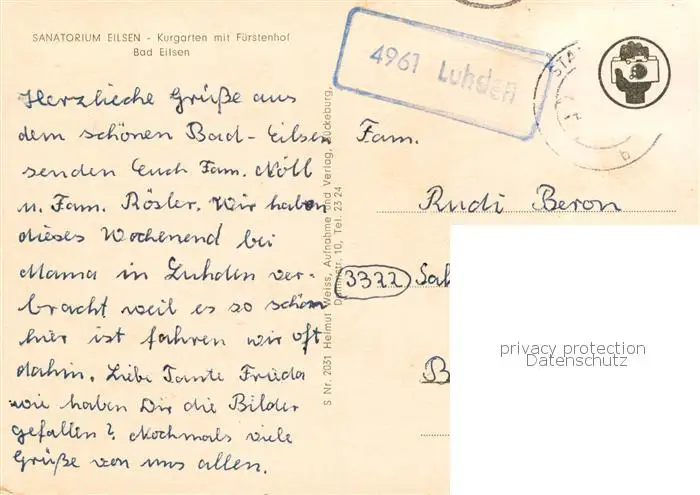 SANATORIUM EILSEN - Kurgarten mit Fürstenhof
Bad Eilsen
4961 Luhden
Herzlieche Grüße aus
dem schönen Bad-Eilsen
senden Euch Fam. Nöll
u. Fam. Rösler. Wir haben
dieses Wochenend bei
Mama in Luhden ver-
bracht weil es so schön
hier ist fahren wir oft
dahin. Liebe Tante Frieda
wie haben Dir die Bilder
gefallen? Nochmals viele
Grüße von uns allen.
S Nr. 2031 Helmut Weiss, Aufnahme und Verlag, Bückeburg,
10, Tel. 23 24
Fam.
Rudi Beron
3322 Sal
B
privacy protection
Datenschutz
STA
b